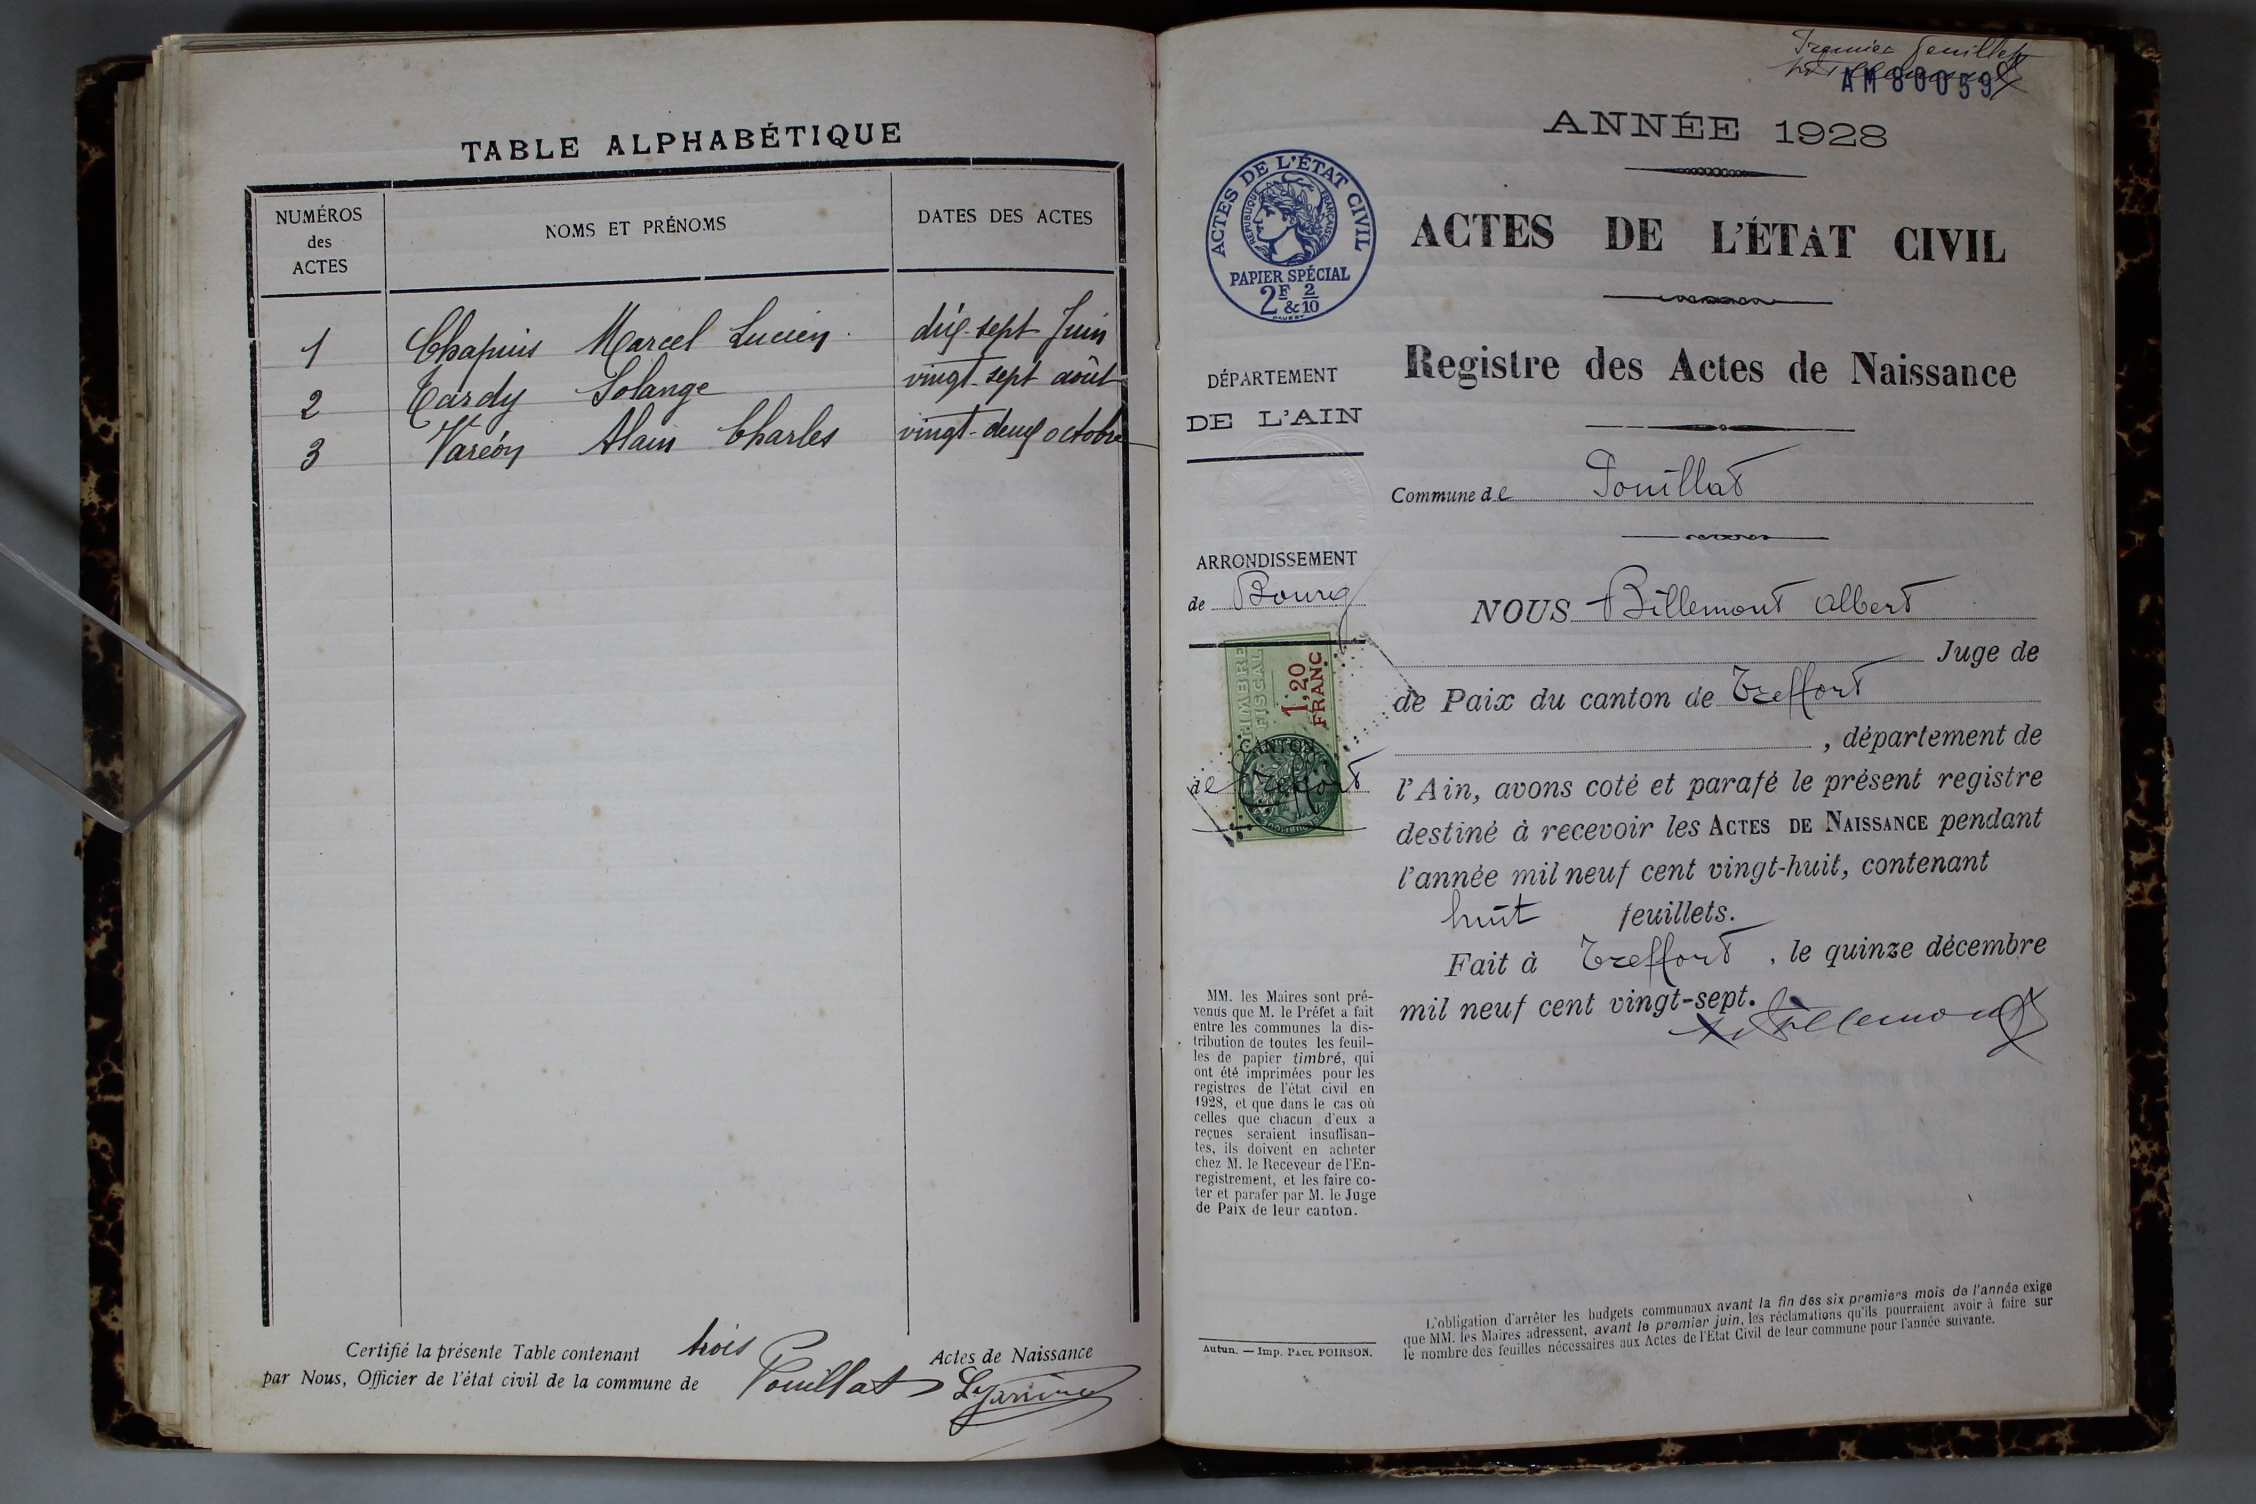 TABLE ALPHABÉTIQUE
NUMÉROS
des
ACTES
NOMS ET PRÉNOMS
DATES DES ACTES
1 Chapuis Marcel Lucien dix-sept Juin
2 Tardy Solange vingt-sept août
3 Varéon Alain Charles vingt-deux octobre
Certifié la présente Table contenant trois Actes de Naissance
par Nous, Officier de l'état civil de la commune de Pouillat
Premier feuillet
AM 80059
ANNÉE 1928
ACTES DE L'ÉTAT CIVIL
RÉPUBLIQUE FRANÇAISE
PAPIER SPÉCIAL
2F & 2/10
ACTES DE L'ÉTAT CIVIL
Registre des Actes de Naissance
DÉPARTEMENT
DE L'AIN
Commune de Pouillat
ARRONDISSEMENT
de Bourg
TIMBRE
FISCAL
1,20
FRANC
CANTON
de Treffort
NOUS Billemont Albert
Juge de
de Paix du canton de Treffort
, département de
l'Ain, avons coté et parafé le présent registre
destiné à recevoir les ACTES DE NAISSANCE pendant
l'année mil neuf cent vingt-huit, contenant
huit feuillets.
Fait à Treffort, le quinze décembre
mil neuf cent vingt-sept.
Billemont
MM. les Maires sont pré-
venus que M. le Préfet a fait
entre les communes la dis-
tribution de toutes les feuil-
les de papier timbré, qui
ont été imprimées pour les
registres de l'état civil en
1928, et que dans le cas où
celles que chacun d'eux a
reçues seraient insuffisan-
tes, ils doivent en acheter
chez M. le Receveur de l'En-
registrement, et les faire co-
ter et parafer par M. le Juge
de Paix de leur canton.
Autun. — Imp. PAUL POIRSON.
L'obligation d'arrêter les budgets communaux avant la fin des six premiers mois de l'année exige
que MM. les Maires adressent, avant le premier juin, les réclamations qu'ils pourraient avoir à faire sur
le nombre des feuilles nécessaires aux Actes de l'Etat Civil de leur commune pour l'année suivante.